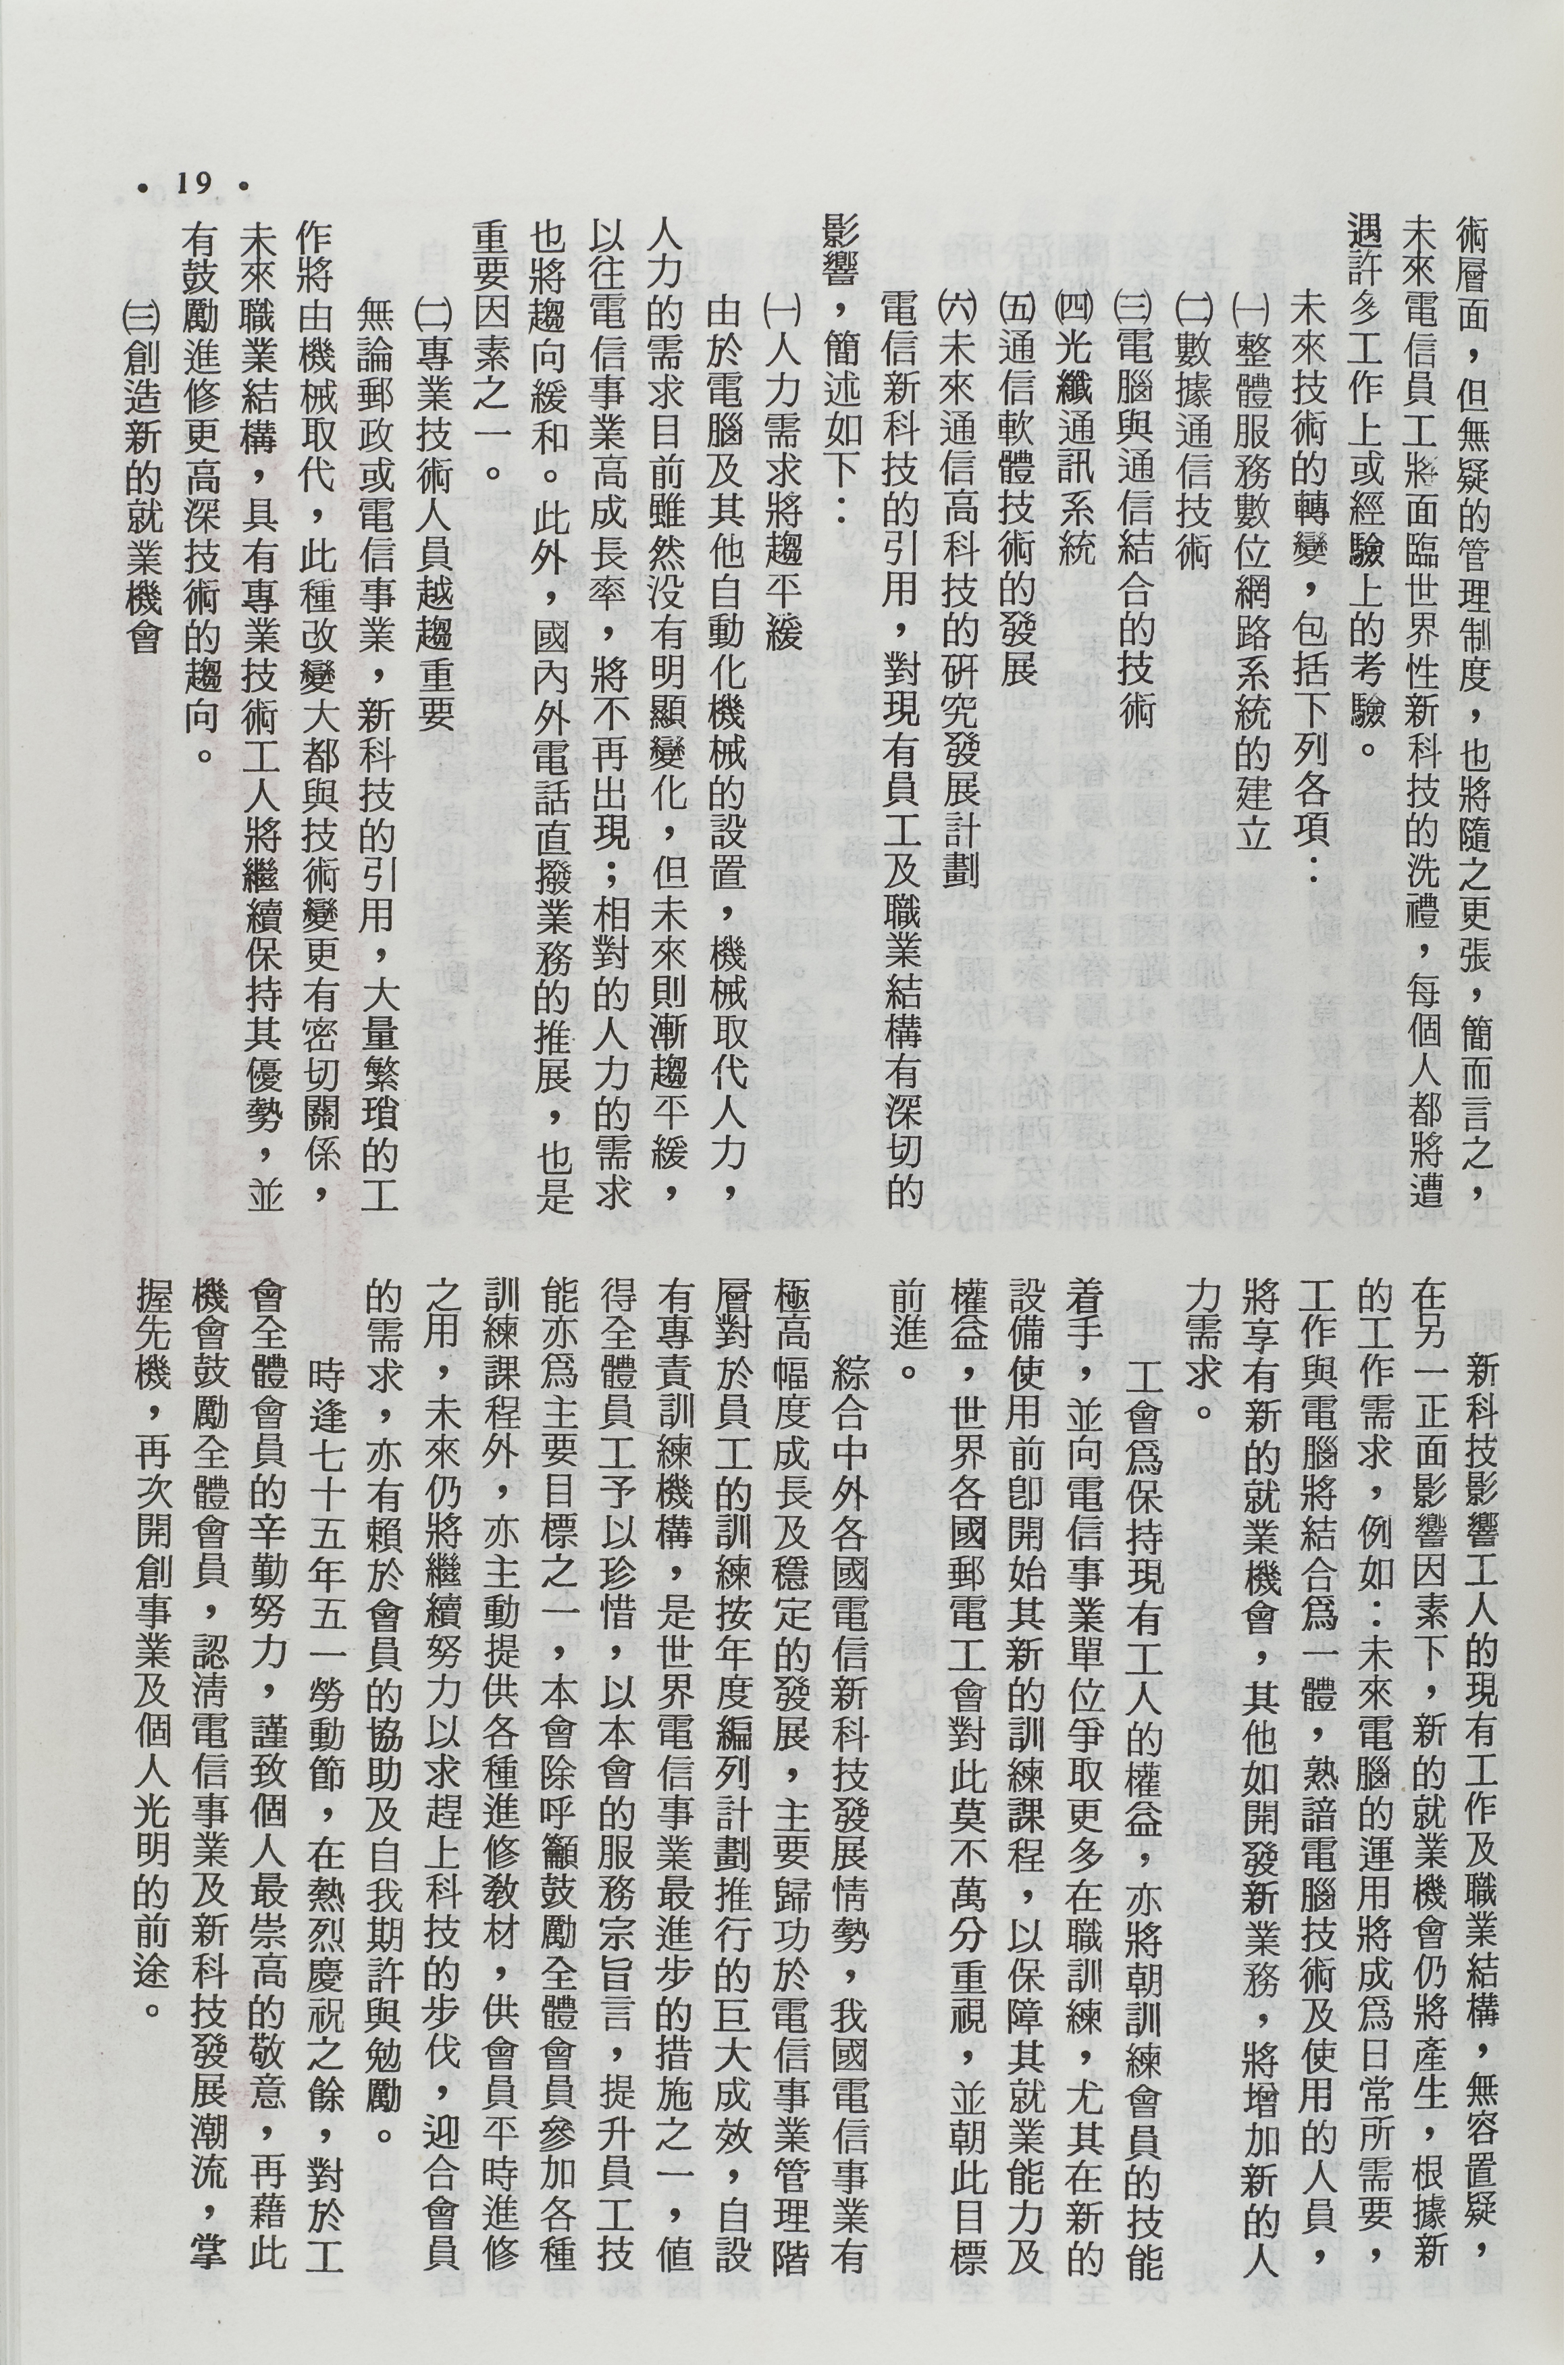 • 19 •
術層面，但無疑的管理制度，也將隨之更張，簡而言之，
未來電信員工將面臨世界性新科技的洗禮，每個人都將遭
遇許多工作上或經驗上的考驗。
未來技術的轉變，包括下列各項：
㈠整體服務數位網路系統的建立
㈡數據通信技術
㈢電腦與通信結合的技術
㈣光纖通訊系統
㈤通信軟體技術的發展
㈥未來通信高科技的研究發展計劃
電信新科技的引用，對現有員工及職業結構有深切的
影響，簡述如下：
㈠人力需求將趨平緩
由於電腦及其他自動化機械的設置，機械取代人力，
人力的需求目前雖然没有明顯變化，但未來則漸趨平緩，
以往電信事業高成長率，將不再出現；相對的人力的需求
也將趨向緩和。此外，國內外電話直撥業務的推展，也是
重要因素之一。
㈡專業技術人員越趨重要
無論郵政或電信事業，新科技的引用，大量繁瑣的工
作將由機械取代，此種改變大都與技術變更有密切關係，
未來職業結構，具有專業技術工人將繼續保持其優勢，並
有鼓勵進修更高深技術的趨向。
㈢創造新的就業機會
新科技影響工人的現有工作及職業結構，無容置疑，
在另一正面影響因素下，新的就業機會仍將產生，根據新
的工作需求，例如：未來電腦的運用將成爲日常所需要，
工作與電腦將結合爲一體，熟諳電腦技術及使用的人員，
將享有新的就業機會，其他如開發新業務，將增加新的人
力需求。
工會爲保持現有工人的權益，亦將朝訓練會員的技能
着手，並向電信事業單位爭取更多在職訓練，尤其在新的
設備使用前卽開始其新的訓練課程，以保障其就業能力及
權益，世界各國郵電工會對此莫不萬分重視，並朝此目標
前進。
綜合中外各國電信新科技發展情勢，我國電信事業有
極高幅度成長及穩定的發展，主要歸功於電信事業管理階
層對於員工的訓練按年度編列計劃推行的巨大成效，自設
有專責訓練機構，是世界電信事業最進步的措施之一，值
得全體員工予以珍惜，以本會的服務宗旨言，提升員工技
能亦爲主要目標之一，本會除呼籲鼓勵全體會員參加各種
訓練課程外，亦主動提供各種進修敎材，供會員平時進修
之用，未來仍將繼續努力以求趕上科技的步伐，迎合會員
的需求，亦有賴於會員的協助及自我期許與勉勵。
時逢七十五年五一勞動節，在熱烈慶祝之餘，對於工
會全體會員的辛勤努力，謹致個人最崇高的敬意，再藉此
機會鼓勵全體會員，認淸電信事業及新科技發展潮流，掌
握先機，再次開創事業及個人光明的前途。